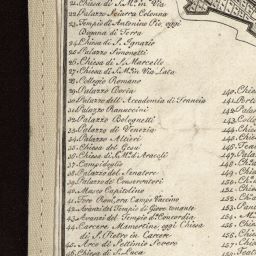 21. Chiesa di S. M.ª in Via
22. Palazzo Sciarra Colonna
23. Tempio di Antonino Pio, oggi
Dogana di Terra
24. Chiesa di S. Ignazio
25. Palazzo Simonetti
26. Chiesa di S. Marcello
27. Chiesa di S. M.ª in Via Lata
28. Collegio Romano
29. Palazzo Doria
30. Palazzo dell' Accademia di Francia
31. Palazzo Ranuccini
32. Palazzo Bolognetti
33. Palazzo di Venezia
34. Palazzo Altieri
35. Chiesa del Gesù
36. Chiesa di S. M.ª d'Aracoeli
37. Campidoglio
38. Palazzo del Senatore
39. Palazzo de Conservatori
40. Museo Capitolino
41. Foro Rom.º ora Campo Vaccino
42. Avanzi del Tempio di Giove tonante
43. Avanzi del Tempio d. Concordia
44. Carcere Mamertino; oggi Chiesa
di S. Pietro in Carcere
45. Arco di Settimio Severo
46. Chiesa di S. Luca
140. Chie
141. Port
142. Pala
143. Coll
144. Chie
145. Chie
146. Teat
147. Pala
148. Chie
149. Chie
150. Chie
151. Chie
152. Chie
153. Chi
154. Chi
155. Chi
156. Chi
157. Chi
158.
159.